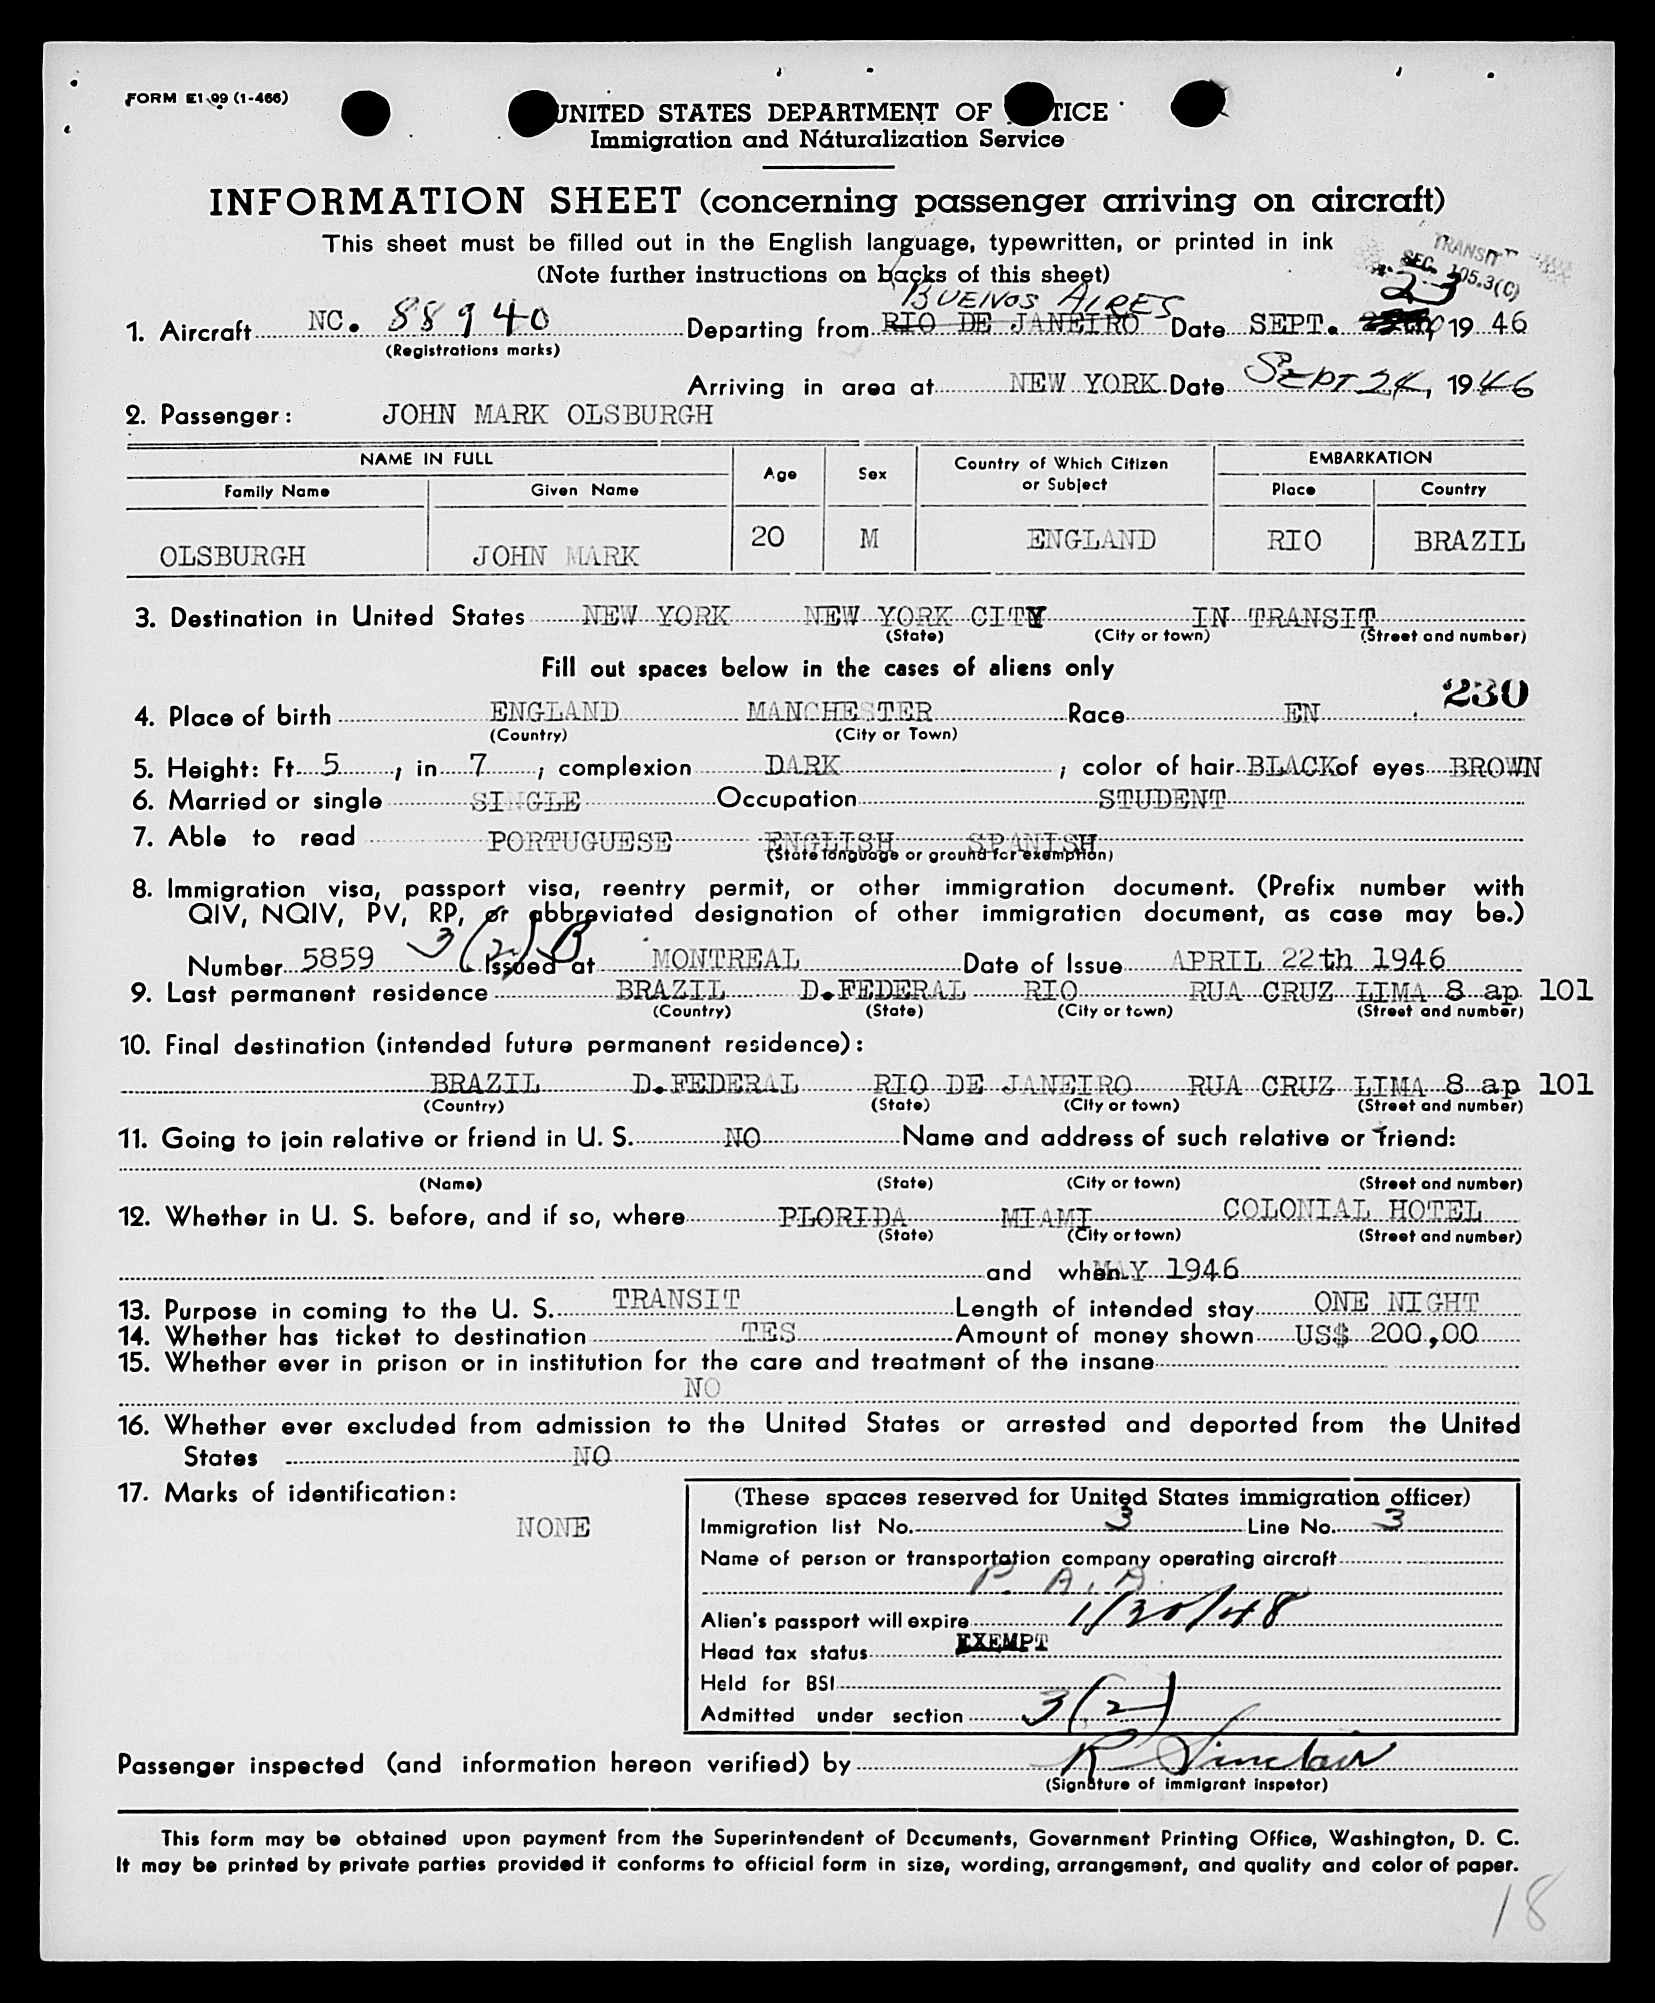 FORM E1-99 (1-466)
UNITED STATES DEPARTMENT OF TICE
Immigration and Naturalization Service
INFORMATION SHEET (concerning passenger arriving on aircraft)
This sheet must be filled out in the English language, typewritten, or printed in ink
(Note further instructions on backs of this sheet)
TRANSIT
SEC. 105.3(C)
BUENOS AIRES 23
1. Aircraft NC. 88940 Departing from RIO DE JANEIRO Date SEPT. 19 46
(Registrations marks)
Arriving in area at NEW YORK Date SEPT 24, 1946
2. Passenger: JOHN MARK OLSBURGH
NAME IN FULL Age Sex Country of Which Citizen or Subject EMBARKATION
Family Name Given Name Place Country
OLSBURGH JOHN MARK 20 M ENGLAND RIO BRAZIL
3. Destination in United States NEW YORK NEW YORK CITY IN TRANSIT
(State) (City or town) (Street and number)
Fill out spaces below in the cases of aliens only
230
4. Place of birth ENGLAND MANCHESTER Race EN
(Country) (City or Town)
5. Height: Ft. 5, in. 7; complexion DARK; color of hair BLACK of eyes BROWN
6. Married or single SINGLE Occupation STUDENT
7. Able to read PORTUGUESE ENGLISH SPANISH
(State language or ground for exemption)
8. Immigration visa, passport visa, reentry permit, or other immigration document. (Prefix number with
QIV, NQIV, PV, RP, or abbreviated designation of other immigration document, as case may be.)
Number 5859 3(2)B Issued at MONTREAL Date of Issue APRIL 22th 1946
9. Last permanent residence BRAZIL D.FEDERAL RIO RUA CRUZ LIMA 8 ap 101
(Country) (State) (City or town) (Street and number)
10. Final destination (intended future permanent residence):
BRAZIL D.FEDERAL RIO DE JANEIRO RUA CRUZ LIMA 8 ap 101
(Country) (State) (City or town) (Street and number)
11. Going to join relative or friend in U. S. NO Name and address of such relative or friend:
(Name) (State) (City or town) (Street and number)
12. Whether in U. S. before, and if so, where PLORIDA MIAMI COLONIAL HOTEL
(State) (City or town) (Street and number)
and when MAY 1946
13. Purpose in coming to the U. S. TRANSIT Length of intended stay ONE NIGHT
14. Whether has ticket to destination TES Amount of money shown US$ 200,00
15. Whether ever in prison or in institution for the care and treatment of the insane
NO
16. Whether ever excluded from admission to the United States or arrested and deported from the United
States NO
17. Marks of identification:
NONE
(These spaces reserved for United States immigration officer)
Immigration list No. 3 Line No. 3
Name of person or transportation company operating aircraft
P. A. A.
Alien's passport will expire 1/30/48
Head tax status EXEMPT
Held for BSI
Admitted under section 3(2)
Passenger inspected (and information hereon verified) by R Sinclair
(Signature of immigrant inspetor)
This form may be obtained upon payment from the Superintendent of Documents, Government Printing Office, Washington, D. C.
It may be printed by private parties provided it conforms to official form in size, wording, arrangement, and quality and color of paper.
18